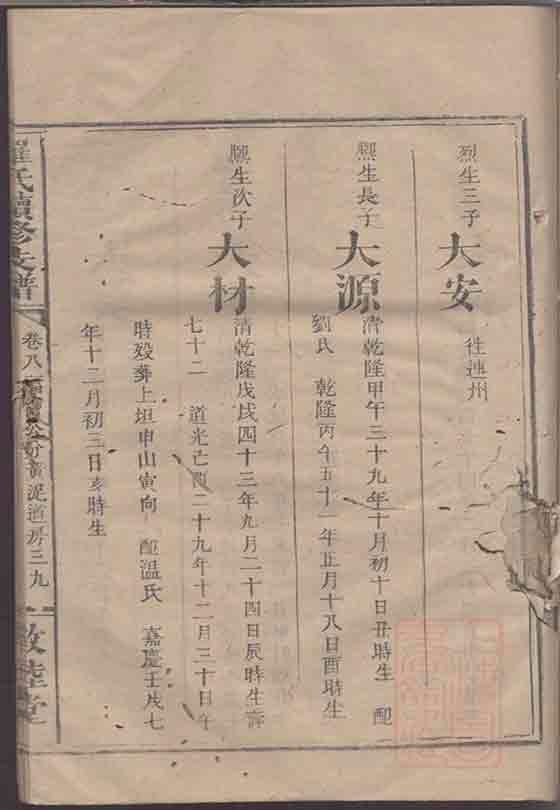 烈生三子
大安
往連州
熙生長子
大源
清乾隆甲午三十九年十月初十日丑時生 配
劉氏 乾隆丙午五十一年正月十八日酉時生
熙生次子
大材
清乾隆戊戌四十三年九月二十四日辰時生壽
七十二 道光己酉二十九年十二月三十日午
時歿葬上坦申山寅向 配溫氏 嘉慶壬戌七
年十二月初三日亥時生
羅氏續修支譜
卷八
公分黃泥道房三九
敦睦堂